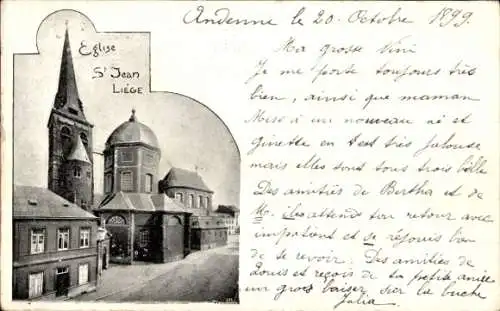 Eglise
St Jean
LIÉGE
Andenne le 20. Octobre 1899
Ma grosse Nini
Je me porte toujours très
bien, ainsi que maman
a un nouveau et
Ginette en est très jalouse
mais elles sont sous très
Des amitiés de Bertha et de
Mr. attends ton retour avec
impatient et se réjouis bon
de se revoir. Des amitiés de
Louis et reçois de ta petite amie
un gros baiser sur la buche
Julia